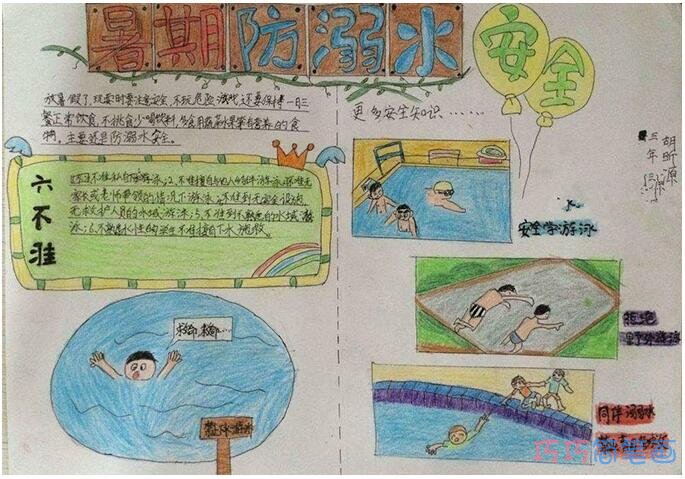 暑期防溺水
安全
放暑假了,玩耍时要注意安全,不玩危险游戏,还要保持一日三
餐正常饮食,不挑食少喝饮料,多食用蔬菜水果等营养的食
物,主要还是防溺水安全。
六不准
游泳;2、不准擅自与他人结伴游泳;3、不准无
家长或老师带领的情况下游泳;4、不准到无安全设施、
无救护人员的水域游泳;5、不准到不熟悉的水域游
泳;6、不熟悉水性的学生不准擅自下水施救。
救命,救命…
禁止游泳
更多安全知识……
胡昕源
三年
安全学游泳
水
拒绝
野外游泳
同伴溺水
巧巧简笔画